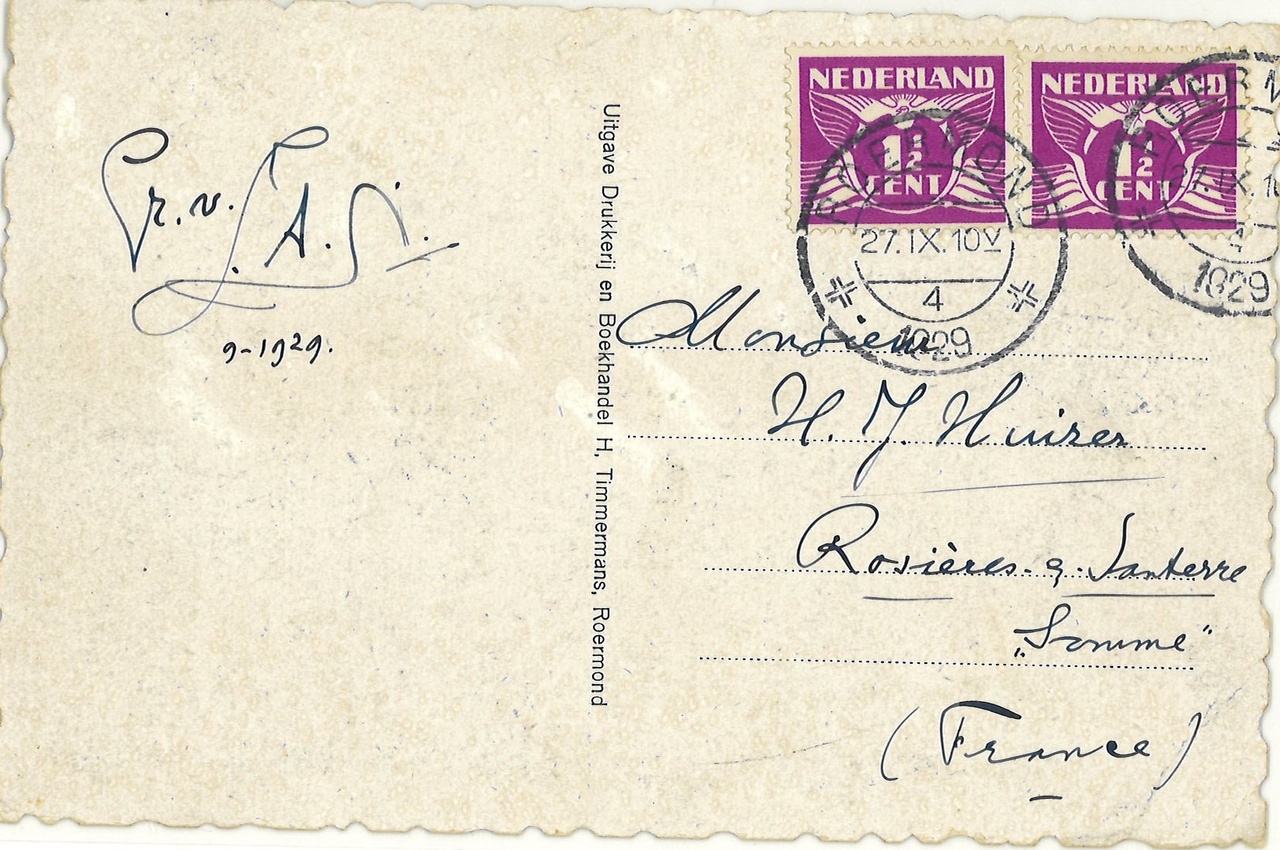 Gr. v.
9-1929.
Uitgave Drukkerij en Boekhandel H. Timmermans, Roermond
NEDERLAND
1½
CENT
NEDERLAND
1½
CENT
ROERMOND
27.IX.10V
4
1929
ROERM
27.IX.10
4
1929
Monsieur
H. J. Huizer
Rosières-e-Santerre
„Somme"
(France)